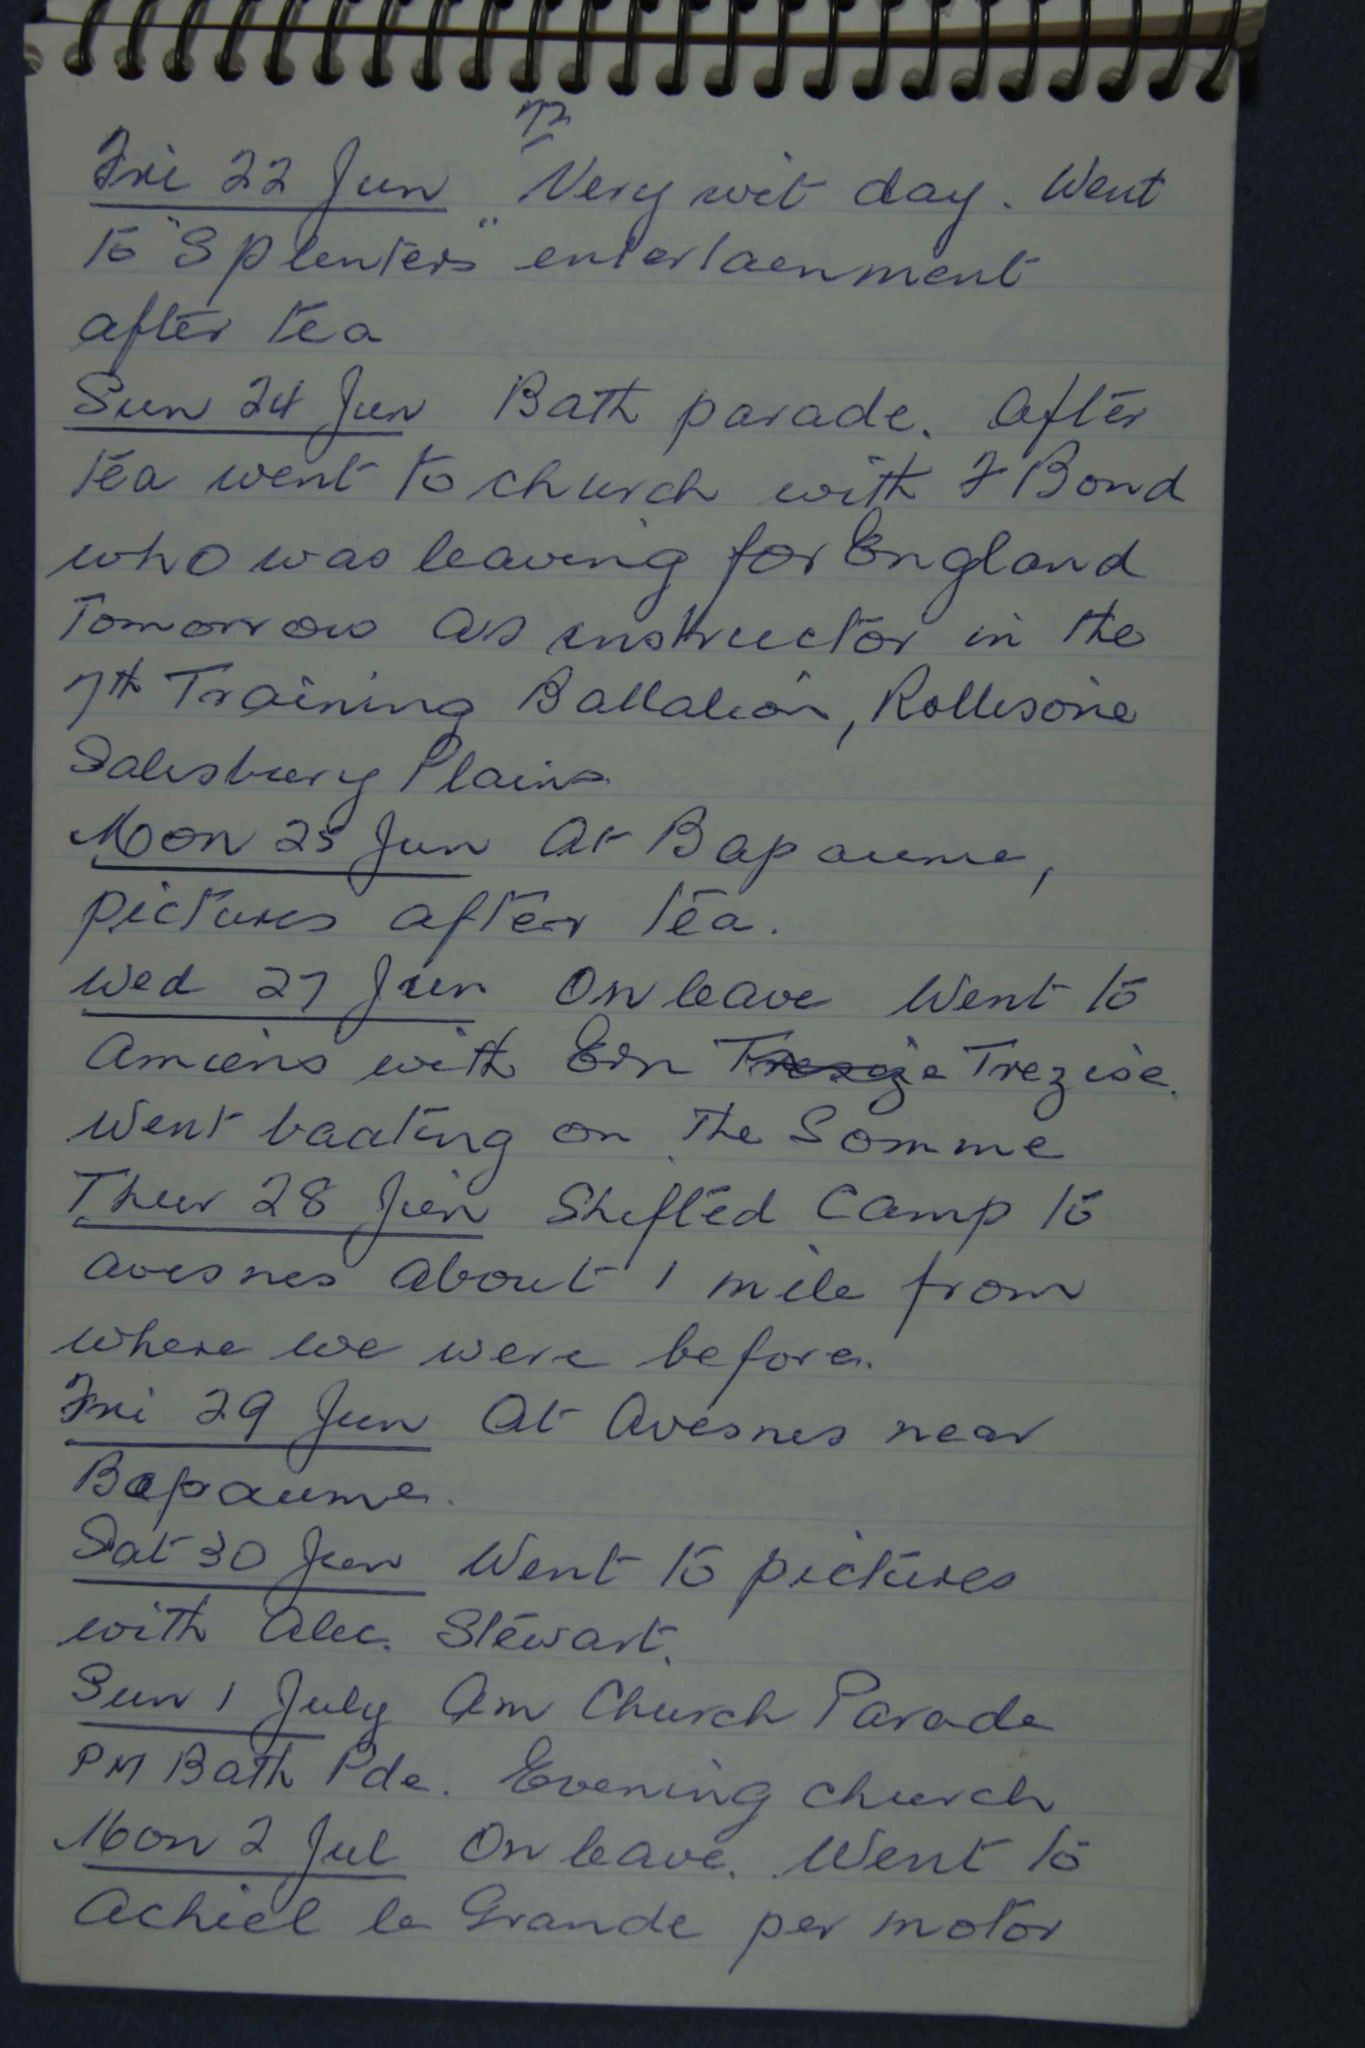 72
Fri 22 Jun Very wet day. Went
to "Splinters" entertainment
after tea
Sun 24 Jun Bath parade. After
tea went to church with F Bond
who was leaving for England
Tomorrow as instructor in the
7th Training Battalion, Rollisone
Salisbury Plains.
Mon 25 Jun At Bapaume,
pictures after tea.
Wed 27 Jun On leave Went to
Amiens with Ern Tresize Trezise.
Went boating on the Somme
Thur 28 Jun Shifted Camp to
Avesnes about 1 mile from
where we were before.
Fri 29 Jun At Avesnes near
Bapaume.
Sat 30 Jun Went to pictures
with Alec. Stewart.
Sun 1 July Am Church Parade
PM Bath Pde. Evening church
Mon 2 Jul On leave. Went to
Achiel le Grande per motor